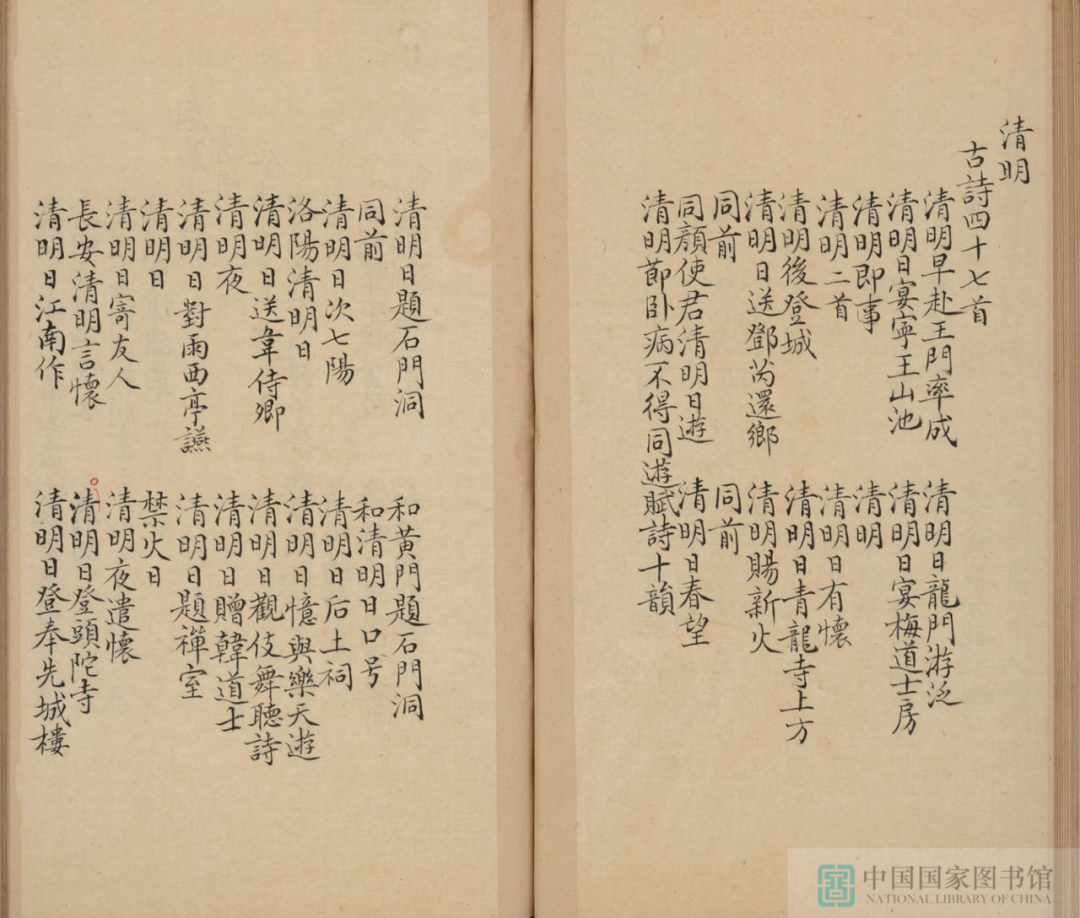 清明
古詩四十七首
清明早赴王門率成
清明日龍門游泛
清明日宴寧王山池
清明日宴梅道士房
清明即事
清明
清明二首
清明日有懷
清明後登城
清明日青龍寺上方
清明日送鄧芮還鄉
清明賜新火
同前
同前
同顏使君清明日遊
清明日春望
清明節卧病不得同遊賦詩十韻
清明日題石門洞
和黃門題石門洞
同前
和清明日口号
清明日次弋陽
清明日后土祠
洛陽清明日
清明日憶與樂天遊
清明日送韋侍卿
清明日觀伎舞聽詩
清明夜
清明日贈韓道士
清明日對雨西亭讌
清明日題禪室
清明日
禁火日
清明日寄友人
清明夜遣懷
長安清明言懷
清明日登頭陀寺
清明日江南作
清明日登奉先城樓
中国国家图书馆
NATIONAL LIBRARY OF CHINA